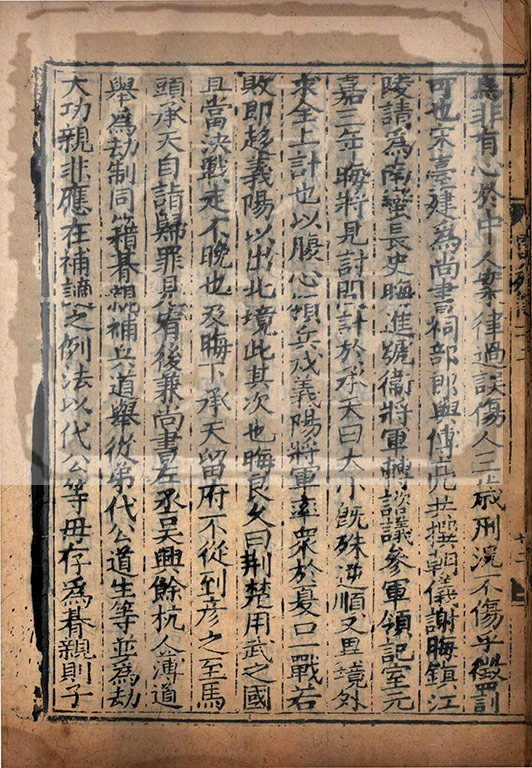 為非有心於中人案律過誤傷人三歲刑況不傷乎徵罰
可也宋臺建為尚書祠部郎與傅亮共撰朝儀謝晦鎮江
陵請為南蠻長史晦進號衛將軍轉諮議參軍領記室元
嘉三年晦將見討問計於承天曰大小旣殊逆順又異境外
求全上計也以腹心領兵戍義陽將軍率衆於夏口一戰若
敗即趍義陽以出北境此其次也晦良久曰荆楚用武之國
且當決戰走不晚也及晦下承天留府不從到彦之至馬
頭承天自詣歸罪見宥後兼尚書左丞吳興餘杭人薄道
舉為劫制同籍朞親補兵道舉從弟代公道生等並為劫
大功親非應在補謫之例法以代公等母存為朞親則子